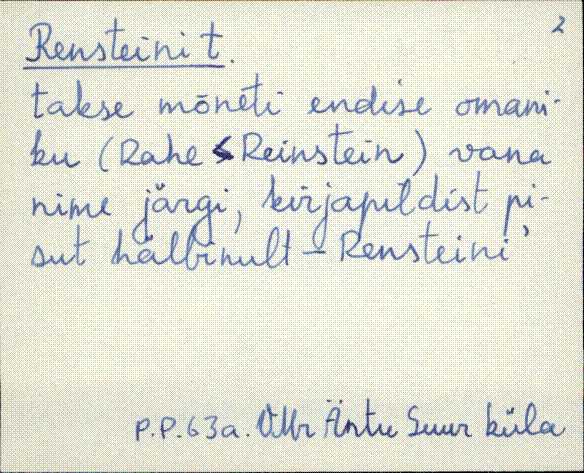 2
Rensteini t.
takse mõneti endise omani-
ku (Rahe < Reinstein) vana
nime järgi, kirjapildist pi-
sut hälbinult - Rensteini'
P.P.63a. VMr Äntu Suur küla